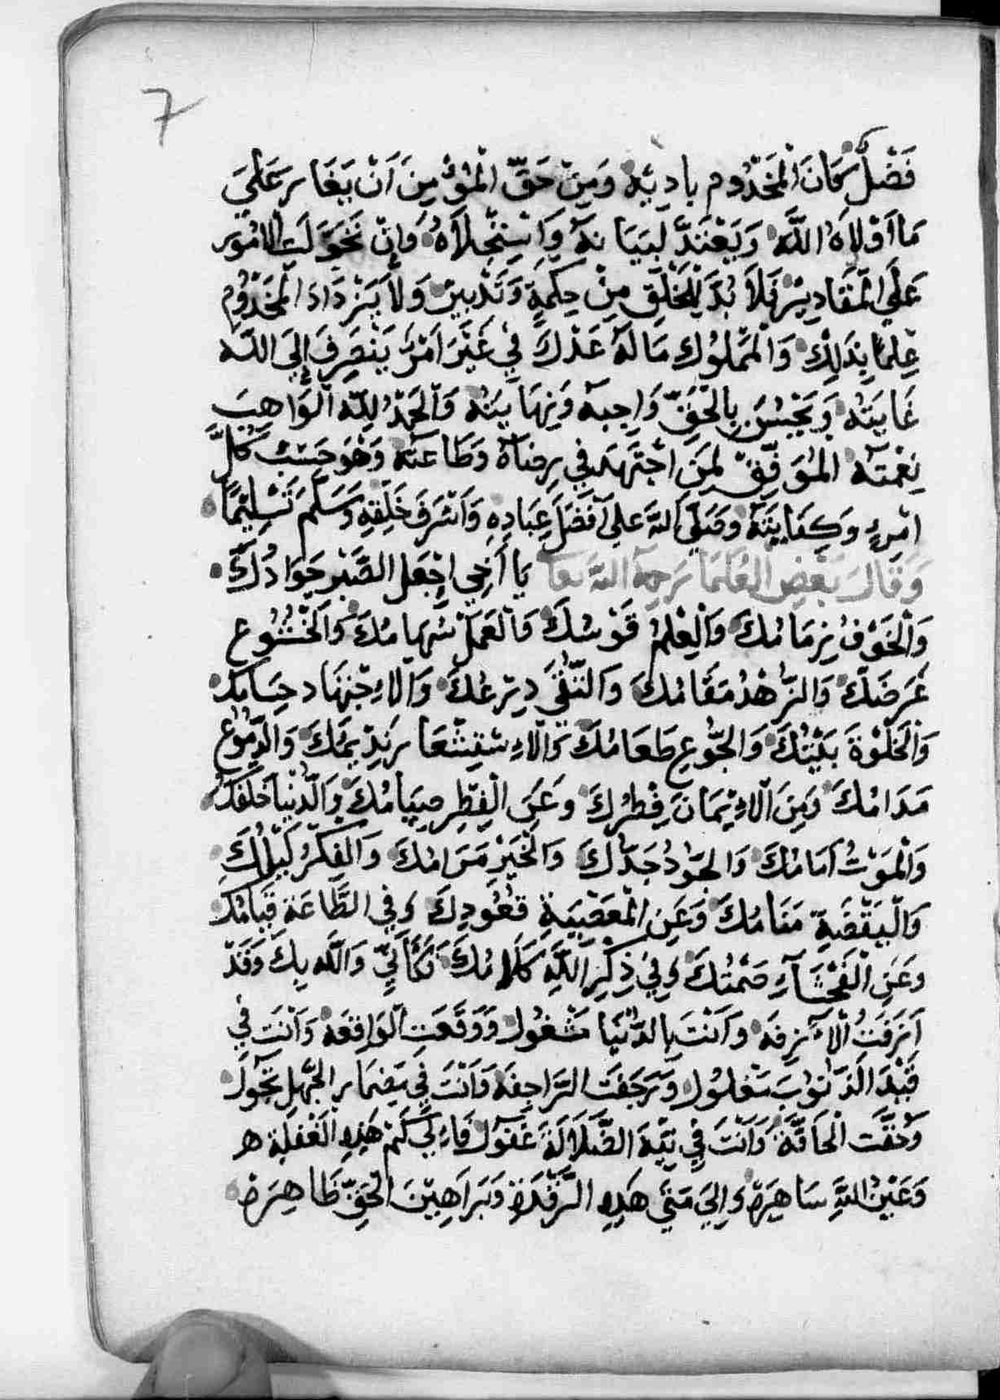 7
فَضْلٌ كَانَ الْمَخْدُوم بادِيَه وَمِنْ حَقِّ الْمُؤْمِنِ اَنْ يَغَارَ عَلَي
مَا اَوْلاَهُ اللَّه وَيَعْتَدَّ لبَيَانه وَاسْتِجْلاَهُ وَاِنْ تَحَوَّلَت الامُور
عَلَي الْمَقَادِيرْ فَلاَ بُدَ لِلخَلْقِ مِنْ حِكْمَةٍ وَتَدْبيرْ وَلاَ يَزْدَادَ الْمَخْدُوم
عِلماً بِذَلِكْ وَالْمَمْلُوك مَالَهُ عَذْلٌ فِي غَيْرَ اَمْرٌ يَنْصَرِفَ اِلَي اللَّه
غَايَتَهْ وَيَحْسُنَ بِالْحَقِّ وَاجِبهَ وَنِهَايَتَهُ وَالحَمْدُ لِلّه الْوَاهِبَ
نِعْمَتَه المُوَفِّقْ لِمَن اجْتَهَدَ في رِضَاهُ وَطَاعَتَه وَهُوَ حَسْبُ كُلَّ
امْرِءٍ وَكِفَايَتَه وَصَلَّي اللهُ عَلي اَفضَلَ عِبَادِهِ وَاَشْرَفَ خَلْقِهِ وَسَلَّمَ تَسْلِيْمًا
وَقَالَ بَعْضِ العُلَمَا رَحِمَهُ اللهَ تعا يَا أَخِي اِجْعَل الصَّبْر جَوَادُكَ
وَالْخَوْفُ زِمَامُكَ وَالْعِلْمُ قَوْسُكَ وَالْعَمَلْ سْهَامُكَ وَالْخُشُوع
غَرَضَكَ وَالزُّهْدُ مَقَامُكَ وَالتُّقَي دِرْعُكَ وَالاِجْتِهَاد حِسَامَكَ
وَالْخَلْوَةَ بَيْتُكَ وَالجُّوعِ طَعَامُكَ وَالاِسْتِشْعَار نَدِيْمُكَ وَالدِّمُوْعْ
مَدَامُكَ وَمِنَ الْاِيْمَانَ فِطْرُكَ وعَنِ الْفِطْرِ صِيَامُكَ وَالدُّنْيَا خَلفَكَ
وَالْمَوْتُ اَمَامُكَ وَالجُودُ جَدُّكَ وَالْخَيْرَ مَرَامُكَ وَالفِكْرُ لَيْلُكَ
وَالْيَقْضَةِ مَنَامُكَ وَعَنِ الْمَعْصِيَةِ قُعُودِكَ وَفي الطَّاعَة قِيَامُكَ
وَعَنِ الْفَحْشَآءِ صَمْتُكَ وَفِي ذِكْرِ اللَّهِ كَلَامُكَ فَكَأَنِّي وَاللَّهِ بِكَ وَقَدْ
اَزِفَتُ الْاَزِفَه وَاَنْتَ بِالدُّنْيَا مَشْغُول وَوَقَعَت الْوَاقِعَه وَاَنْتَ فِي
قَيْدَ الذَنُوب مَغلُول وَرَجَفَت الرَّاجِفَه وَاَنْتَ فِي مِضْمَار الجَّهْل تَجُولَ
وَحُقَّت الْحَاقَّةَ وَاَنْتَ فِي تِيْهَ الضَّلَالَةَ غَفُول فَاِلَي كَمْ هَذِهِ الْغَفْلَة ه
وَعَيْنُ اللهِ سَاهِرَةٌ وَاِلَي مَتَي هَذِهِ الرَّقْدَة وَبَرَاهِيْنَ الْحَقِّ ظَاهِرَة